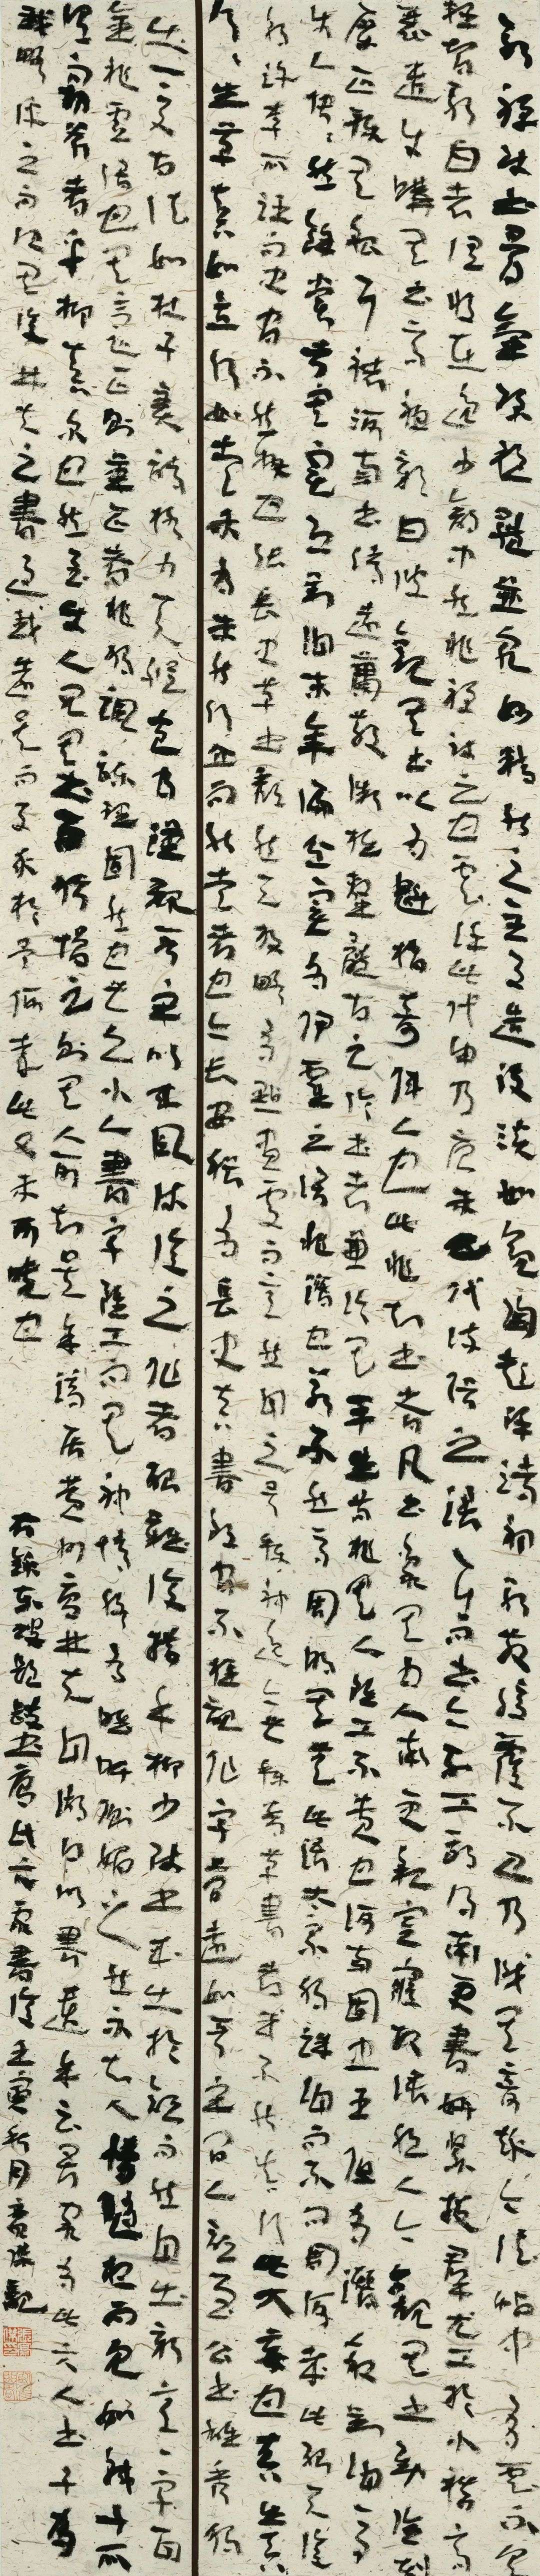 永禪師書骨氣深穩體兼眾妙精能之至反造疏淡如觀陶彭澤詩初若散緩不收乃識其奇趣今法帖中有云不具
釋智永白者誤收在逸少部中然非禪師書也云謹此代申乃唐末五代流俗之語耳而書亦不工歐陽率更書妍緊拔群尤工於小楷高
麗遣使購其書高祖歎曰彼觀其書以為魁梧奇偉人也此非知書者凡書象其為人率更貌寒寢敏悟絕人今觀其書勁險刻
厲正稱其貌耳褚河南書清遠蕭散微雜隸體古之論書者兼論其平生苟非其人雖工不貴也河南固忠臣但有譖殺劉洎一事
使人怏怏然余嘗考其實恐劉洎末年褊忿實有伊霍之語非譖也若不然馬周明其無此語太宗獨誅洎而不問周何哉此殆天后
朝許李所誣而史官不能辨也張長史草書頹然天放略有點畫處而意態自足號稱神逸今世稱善草書者或不能真行此大妄也真生行
行生草真如立行如行草如走未有未能行立而能走者也今長安猶有長史真書郎官石柱記作字簡遠如晉宋間人顏魯公書雄秀獨
出一變古法如杜子美詩格力天縱奄有漢魏晉宋以來風流後之作者殆難復措手柳少師書本出於顏而能自出新意一字百
金非虛語也其言心正則筆正者非獨諷諫理固然也世之小人書字雖工而其神情終有睢盱側媚之態不知人情隨想而見如韓子所
謂竊斧者乎抑真爾也然至使人見其書而猶憎之則其人可知矣余謫居黃州唐林夫自湖口以書遺余云吾家有此六人書子為
我略評之而書其後林夫之書過我遠矣而反求於予何哉此又未可曉也
右錄東坡題跋書唐氏六家書後壬寅秋月